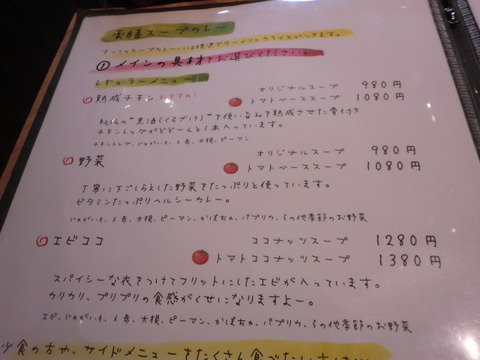 薬膳スープカレー
すべてのスープカレーには標準でターメリックライスがつきます。
① メインの具材をお選びください。
レギュラーメニュー
熟成チキン おすすめ！ オリジナルスープ 980円
トマトベーススープ 1080円
秘伝の"黒酒(くろざけ)"を使い旨みを熟成させた骨付き
チキンレッグがどどーんと1本入っています。
チキンレッグ、じゃがいも、人参、大根、ピーマン
野菜 オリジナルスープ 980円
トマトベーススープ 1080円
丁寧に下ごしらえした野菜をたっぷりと使っています。
ビタミンたっぷりヘルシーカレー。
じゃがいも、人参、大根、ピーマン、かぼちゃ、パプリカ、その他季節のお野菜
エビココ ココナッツスープ 1280円
トマトココナッツスープ 1380円
スパイシーな衣をつけてフリットにしたエビが入っています。
カリカリ、プリプリの食感がくせになりますよー。
エビ、じゃがいも、人参、大根、ピーマン、かぼちゃ、パプリカ、その他季節のお野菜
少食の方や、サイドメニューをたくさん食べたい